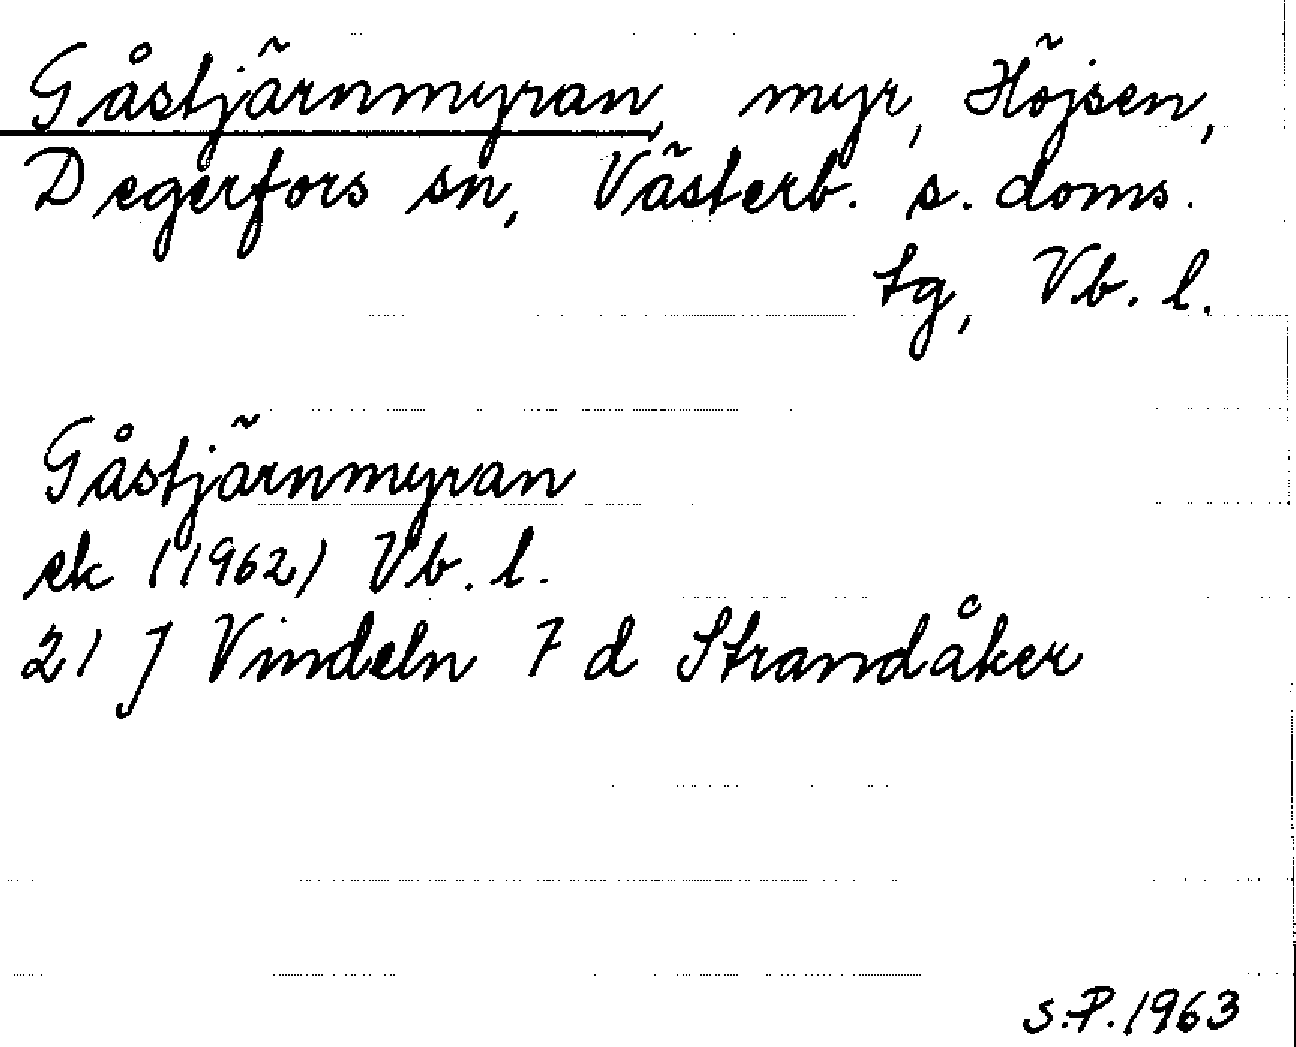 Gåstjärnmyran, myr, Höjsen,
Degerfors sn, Västerb. s. doms.
tg, Vb. l.
Gåstjärnmyran
ek (1962) Vb. l.
21 J Vindeln 7 d Strandåker
S.P. 1963